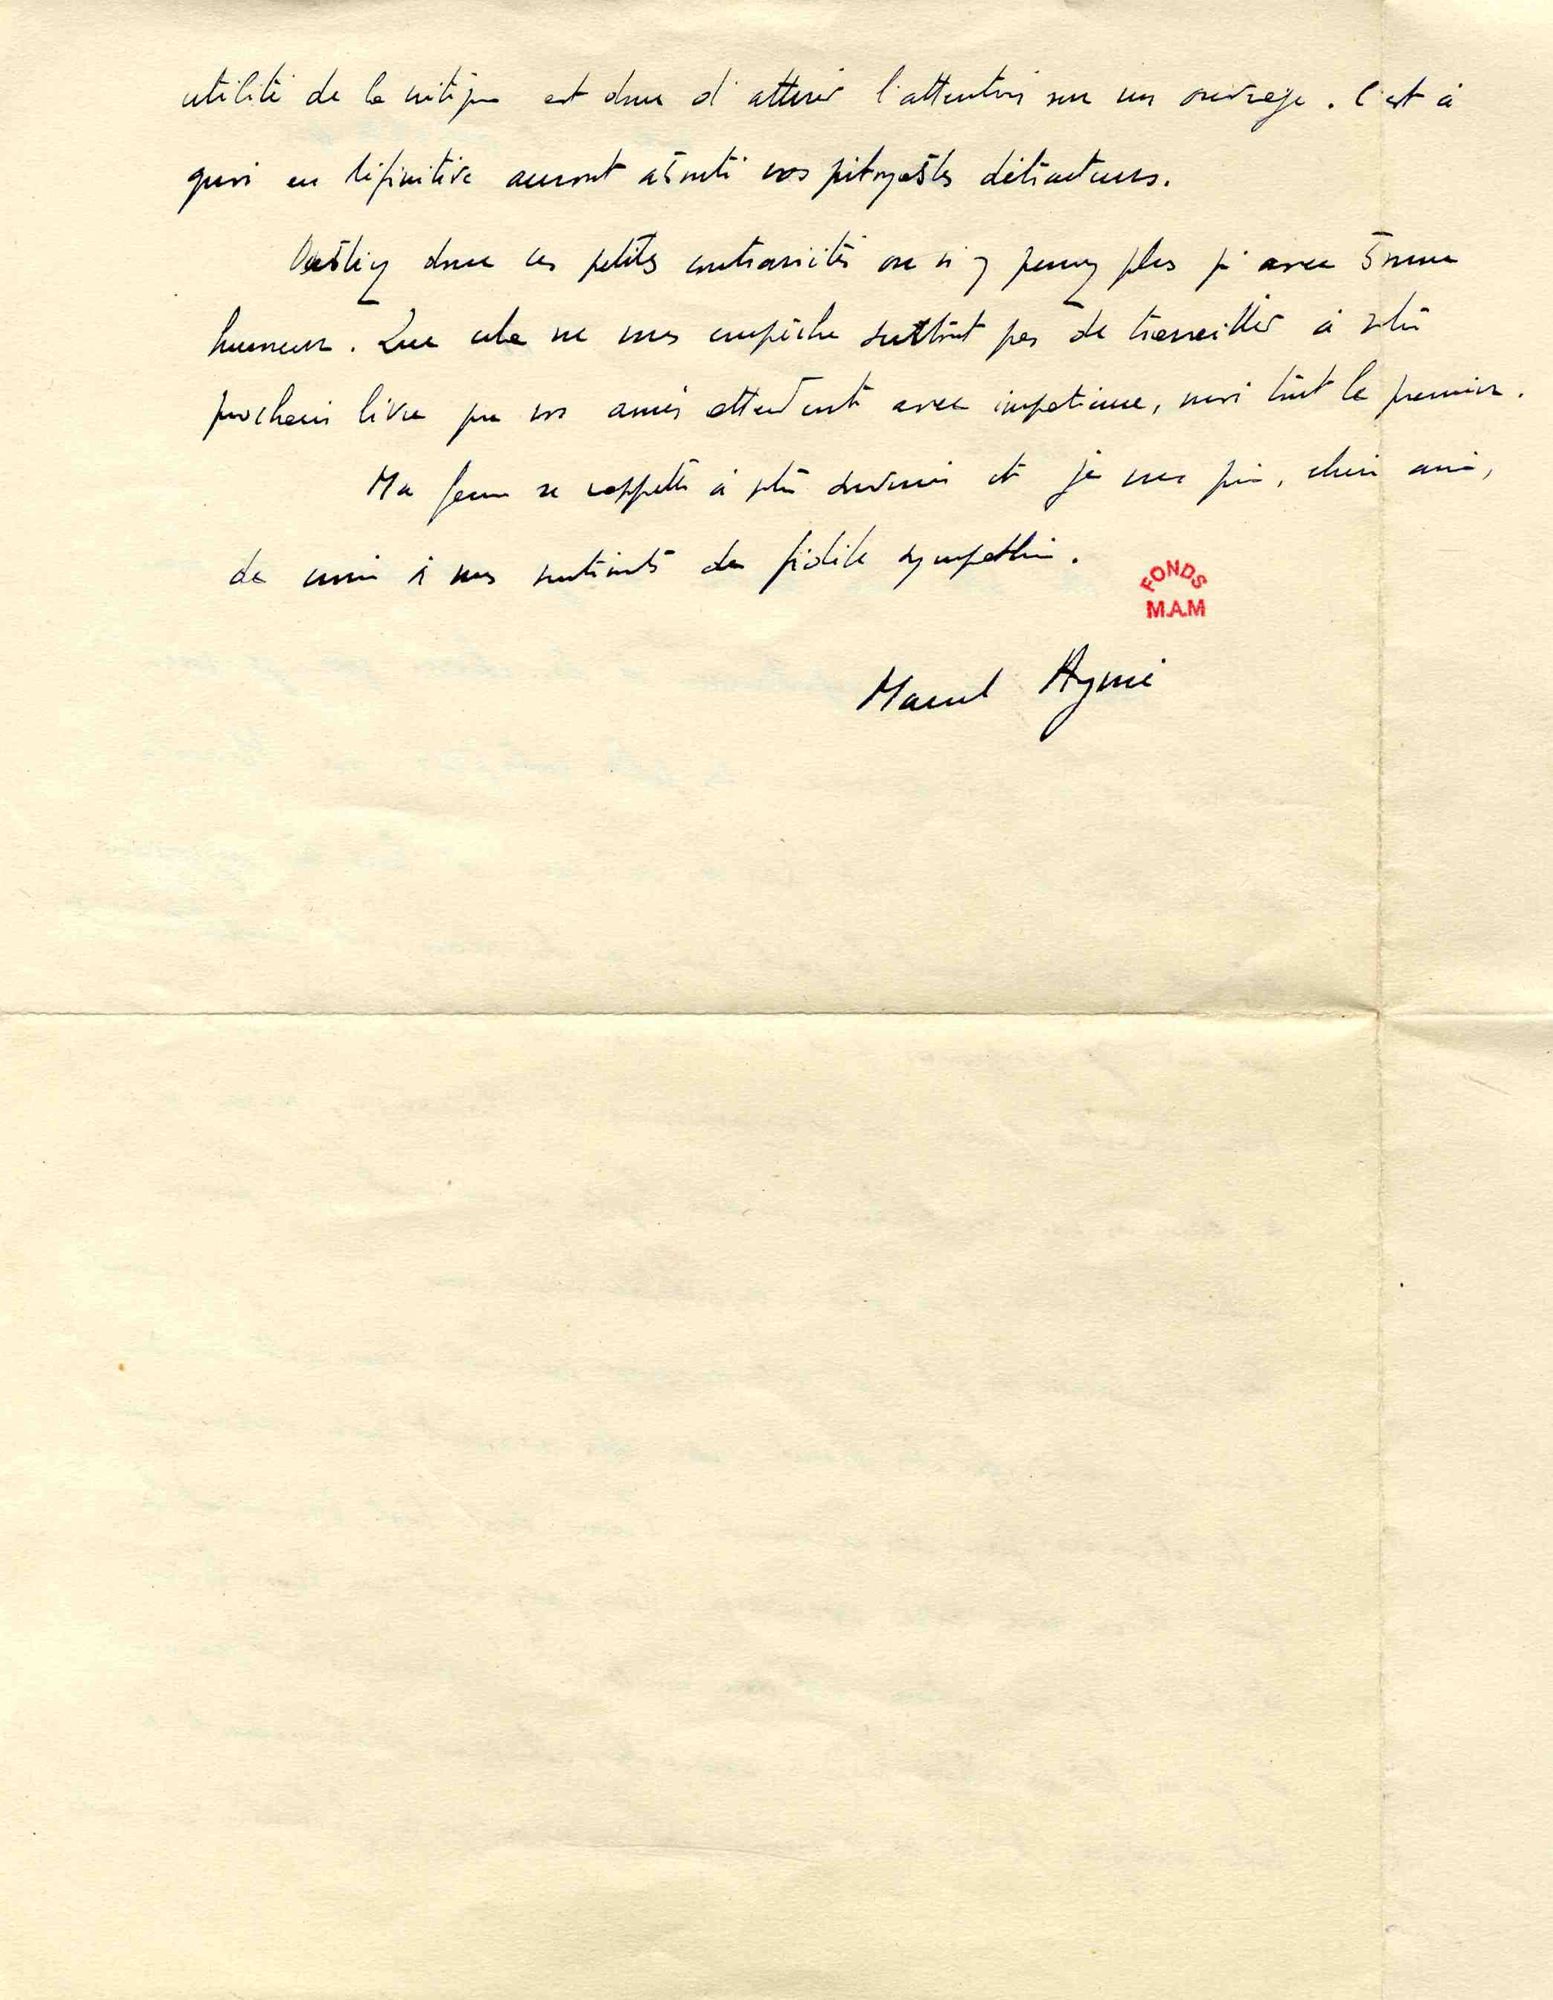 utilité de la critique est donc d'attirer l'attention sur un ouvrage. C'est à
quoi en définitive auront abouti vos pitoyables détracteurs.
Oubliez donc ces petites contrariétés ou n'y pensez plus qu'avec bonne
humeur. Que cela ne vous empêche surtout pas de travailler à votre
prochain livre que vos amis attendent avec impatience, moi tout le premier.
Ma femme se rappelle à votre souvenir et je vous prie, cher ami,
de croire à mes sentiments de fidèle sympathie.
FONDS
M.A.M
Marcel Aymé